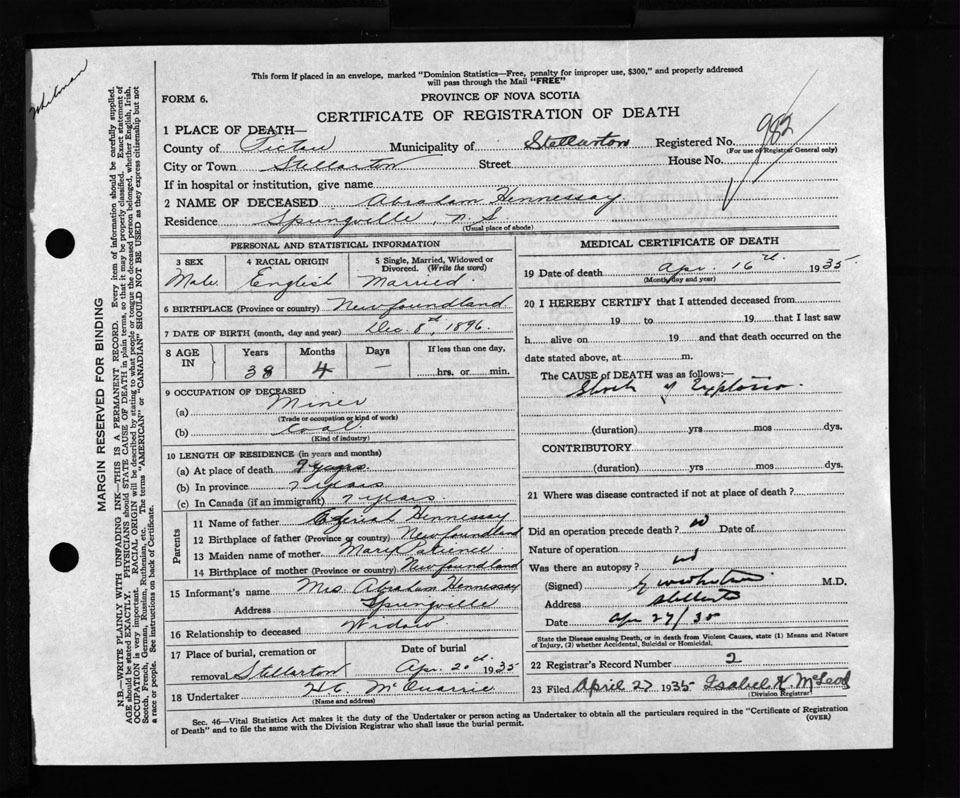 This form if placed in an envelope, marked "Dominion Statistics—Free, penalty for improper use, $300," and properly addressed
will pass through the Mail "FREE"
FORM 6.
PROVINCE OF NOVA SCOTIA
CERTIFICATE OF REGISTRATION OF DEATH
1 PLACE OF DEATH—
County of Pictou Municipality of Stellarton Registered No. 982
(For use of Registrar General only)
City or Town Stellarton Street House No.
If in hospital or institution, give name
2 NAME OF DECEASED Abraham Hennessay
Residence Springville, N.S.
(Usual place of abode)
PERSONAL AND STATISTICAL INFORMATION
3 SEX 4 RACIAL ORIGIN 5 Single, Married, Widowed or
Divorced. (Write the word)
Male English Married
6 BIRTHPLACE (Province or country) Newfoundland
7 DATE OF BIRTH (month, day and year) Dec. 8th, 1896.
8 AGE IN Years Months Days If less than one day,
38 4 — hrs. or min.
9 OCCUPATION OF DECEASED
(a) Miner
(Trade or occupation or kind of work)
(b) Coal
(Kind of industry)
10 LENGTH OF RESIDENCE (in years and months)
(a) At place of death years
(b) In province 7 years
(c) In Canada (if an immigrant) 7 years.
Parents
11 Name of father Hennessay
12 Birthplace of father (Province or country) Newfoundland
13 Maiden name of mother Mary Patience
14 Birthplace of mother (Province or country) Newfoundland
15 Informant's name Mrs. Abraham Hennessay
Address Springville
16 Relationship to deceased Widow
17 Place of burial, cremation or Date of burial
removal Stellarton Apr. 20th 1935
18 Undertaker H C McQuarrie
(Name and address)
MEDICAL CERTIFICATE OF DEATH
19 Date of death Apr. 16th 1935.
(Month, day and year)
20 I HEREBY CERTIFY that I attended deceased from
19 to 19 that I last saw
h alive on 19 and that death occurred on the
date stated above, at m.
The CAUSE of DEATH was as follows:—
Shock of Explosion.
(duration) yrs mos dys.
CONTRIBUTORY
(duration) yrs mos dys.
21 Where was disease contracted if not at place of death?
Did an operation precede death? no Date of
Nature of operation
Was there an autopsy? no
(Signed) M.D.
Address Stellarton
Date Apr 27/35
State the Disease causing Death, or in death from Violent Causes, state (1) Means and Nature
of Injury, (2) whether Accidental, Suicidal or Homicidal.
22 Registrar's Record Number 2
23 Filed April 27 1935 Isabel K. McLeod
(Division Registrar)
Sec. 46—Vital Statistics Act makes it the duty of the Undertaker or person acting as Undertaker to obtain all the particulars required in the "Certificate of Registration
of Death" and to file the same with the Division Registrar who shall issue the burial permit.
(OVER)
MARGIN RESERVED FOR BINDING
N.B.—WRITE PLAINLY WITH UNFADING INK—THIS IS A PERMANENT RECORD. Every item of information should be carefully supplied.
AGE should be stated EXACTLY. PHYSICIANS should STATE CAUSE OF DEATH in plain terms, so that it may be properly classified. Exact statement of
OCCUPATION is very important. RACIAL ORIGIN will be described by stating to what people or tongue the deceased person belonged, whether English, Irish,
Scotch, French, German, Russian, Ruthenian, etc. The terms "AMERICAN" or "CANADIAN" SHOULD NOT BE USED as they express citizenship but not
a race or people. See instructions on back of Certificate.